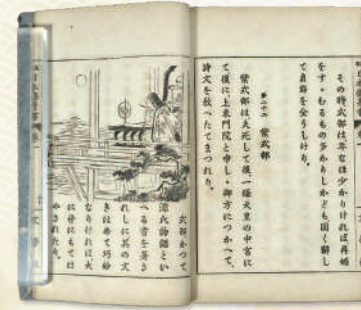 その時式部は、年なほ少かりければ再婚
をす〻むるもの多かりしかども固く辭し
て貞節を全うしけり。
第二十二 紫式部
紫式部は夫死して後、一條天皇の中宮に
て後に、上東門院と申し〻御方につかへて、
詩文を教へたてまつれり。
式部かつて
源氏物語とい
へる書を著さ
れしに其の文
きはめて巧妙
なりければ大
に世にもては
やされたり。